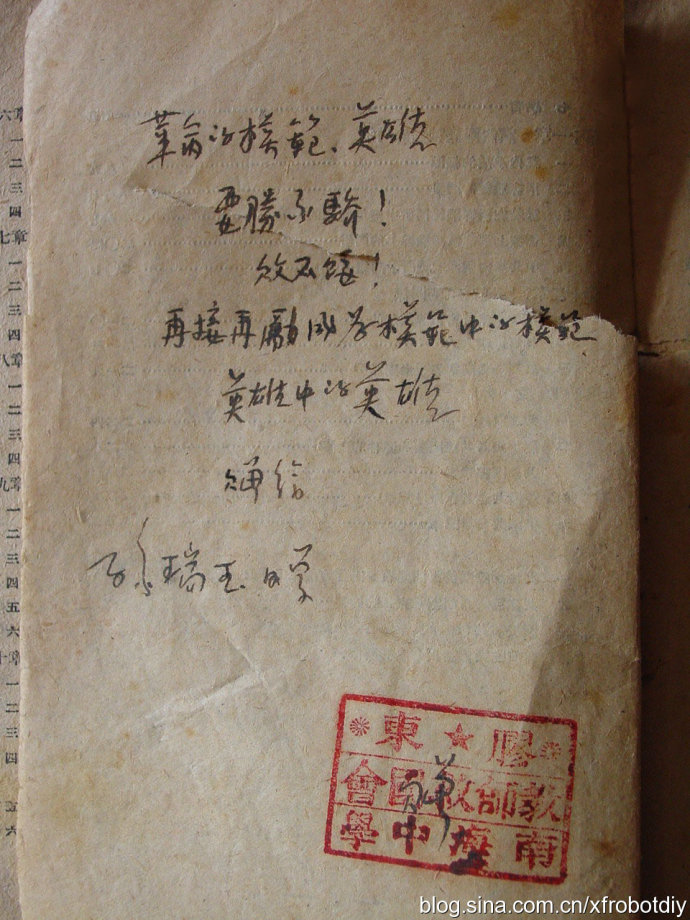 革命的模範、英雄
要勝不驕！
敗不餒！
再接再勵成為模範中的模範
英雄中的英雄
贈給
孫瑞玉同学
膠★東
教師救國會
南海中學
六章
一
二
三
四
七章
一
二
三
四
八章
一
二
三
四
九章
一
二
三
四
五
六
十章
一
二
三
四
五
六
blog.sina.com.cn/xfrobotdiy